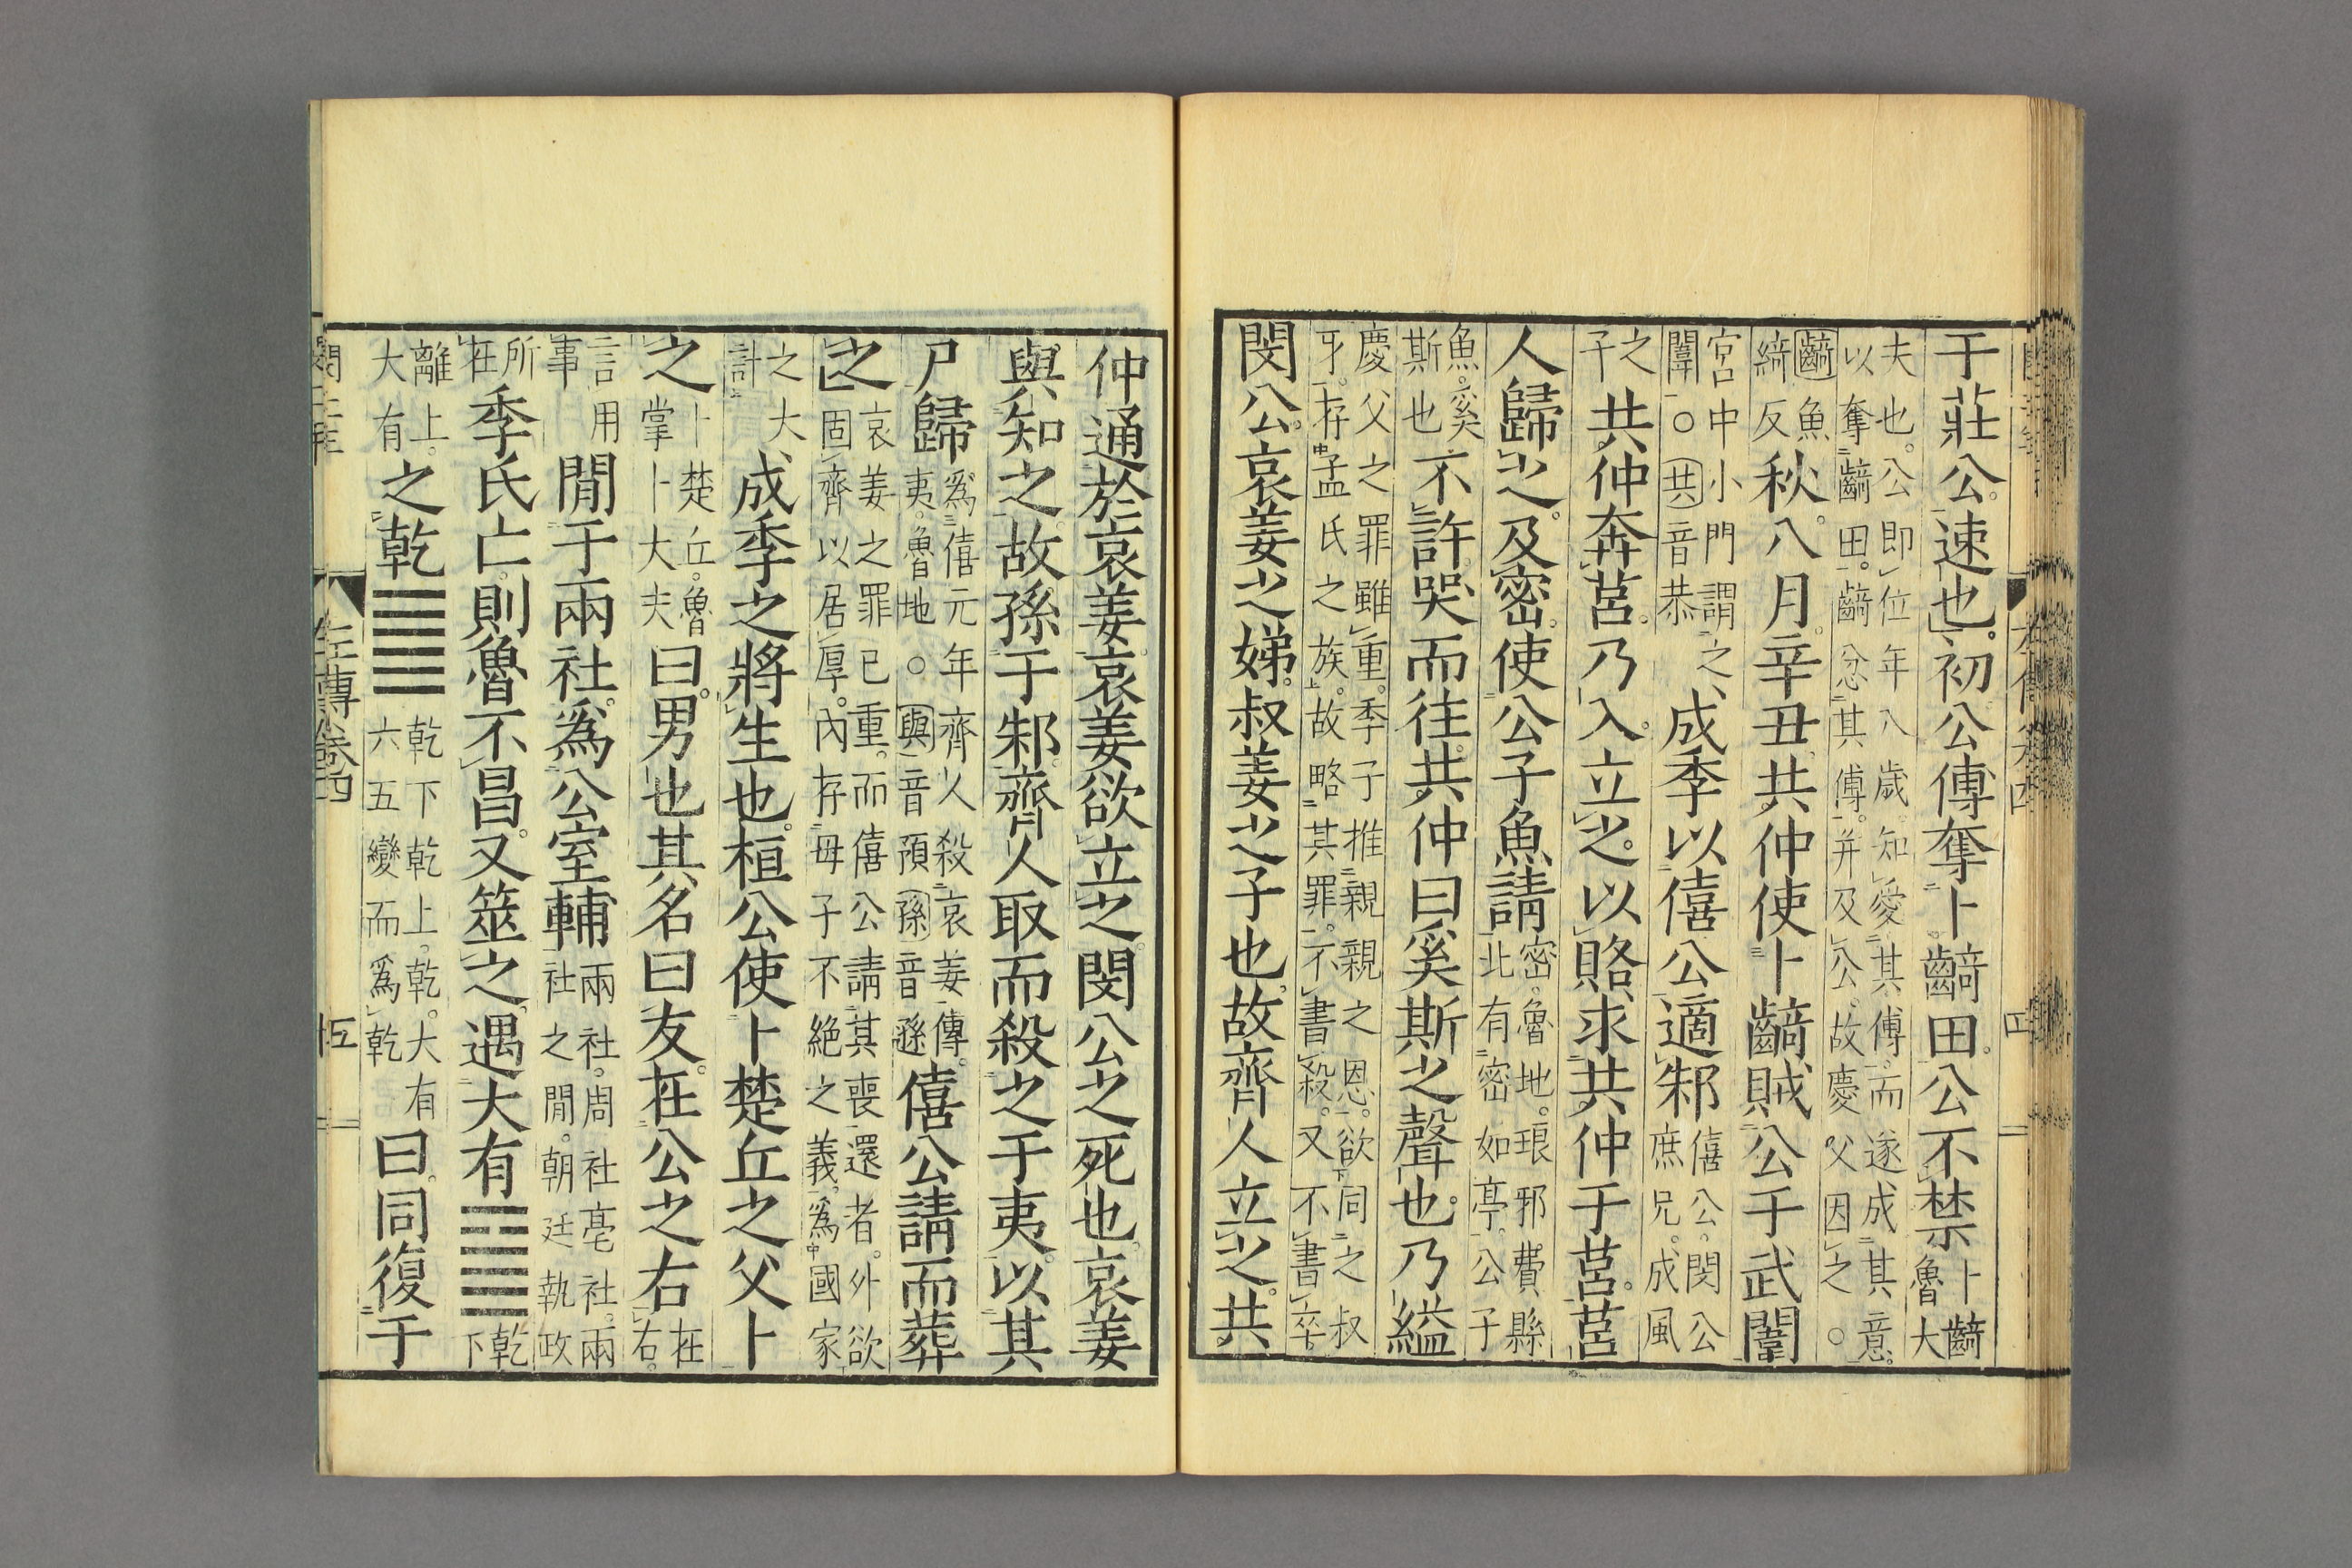 于莊公。速也。初公傅奪卜齮田。公不禁卜齮魯大
夫也。公即位年八歲。知愛其傅。而遂成其意。以奪齮田。齮忿其傅。并及公。故慶父因之。○
齮魚綺反秋八月。辛丑。共仲使卜齮賊公于武闈
宮中小門謂之闈○共音恭成季以僖公適邾僖公。閔公庶兄。成風
之子共仲奔莒。乃入。立之。以賂求共仲于莒。莒
人歸之。及密。使公子魚請密。魯地。琅邪。費縣北有密如亭。公子
魚。奚斯也不許哭而往。共仲曰奚斯之聲也。乃縊
慶父之罪雖重。季子推親親之恩。欲同之叔牙。存孟氏之族。故略其罪。不書殺。又不書卒。
閔公。哀姜之娣。叔姜之子也。故齊人立之。共
仲通於哀姜。哀姜欲立之。閔公之死也。哀姜
與知之。故孫于邾。齊人取而殺之于夷。以其
尸歸爲僖元年齊人殺哀姜傳。夷。魯地。○與音預孫音遜僖公請而葬
之哀姜之罪已重。而僖公請其喪還者。外欲固齊以居厚。內存母子不絕之義。爲國家
之大計成季之將生也。桓公使卜楚丘之父卜
之卜楚丘。魯掌卜大夫曰。男也其名曰友。在公之右在右。
言用事閒于兩社。爲公室輔兩社。周社亳社。兩社之閒。朝廷執政
所在季氏亡。則魯不昌。又筮之。遇大有䷍乾下
離上。大有之乾䷀乾下乾上。乾。大有六五變而爲乾曰。同復于
左傳卷四
五